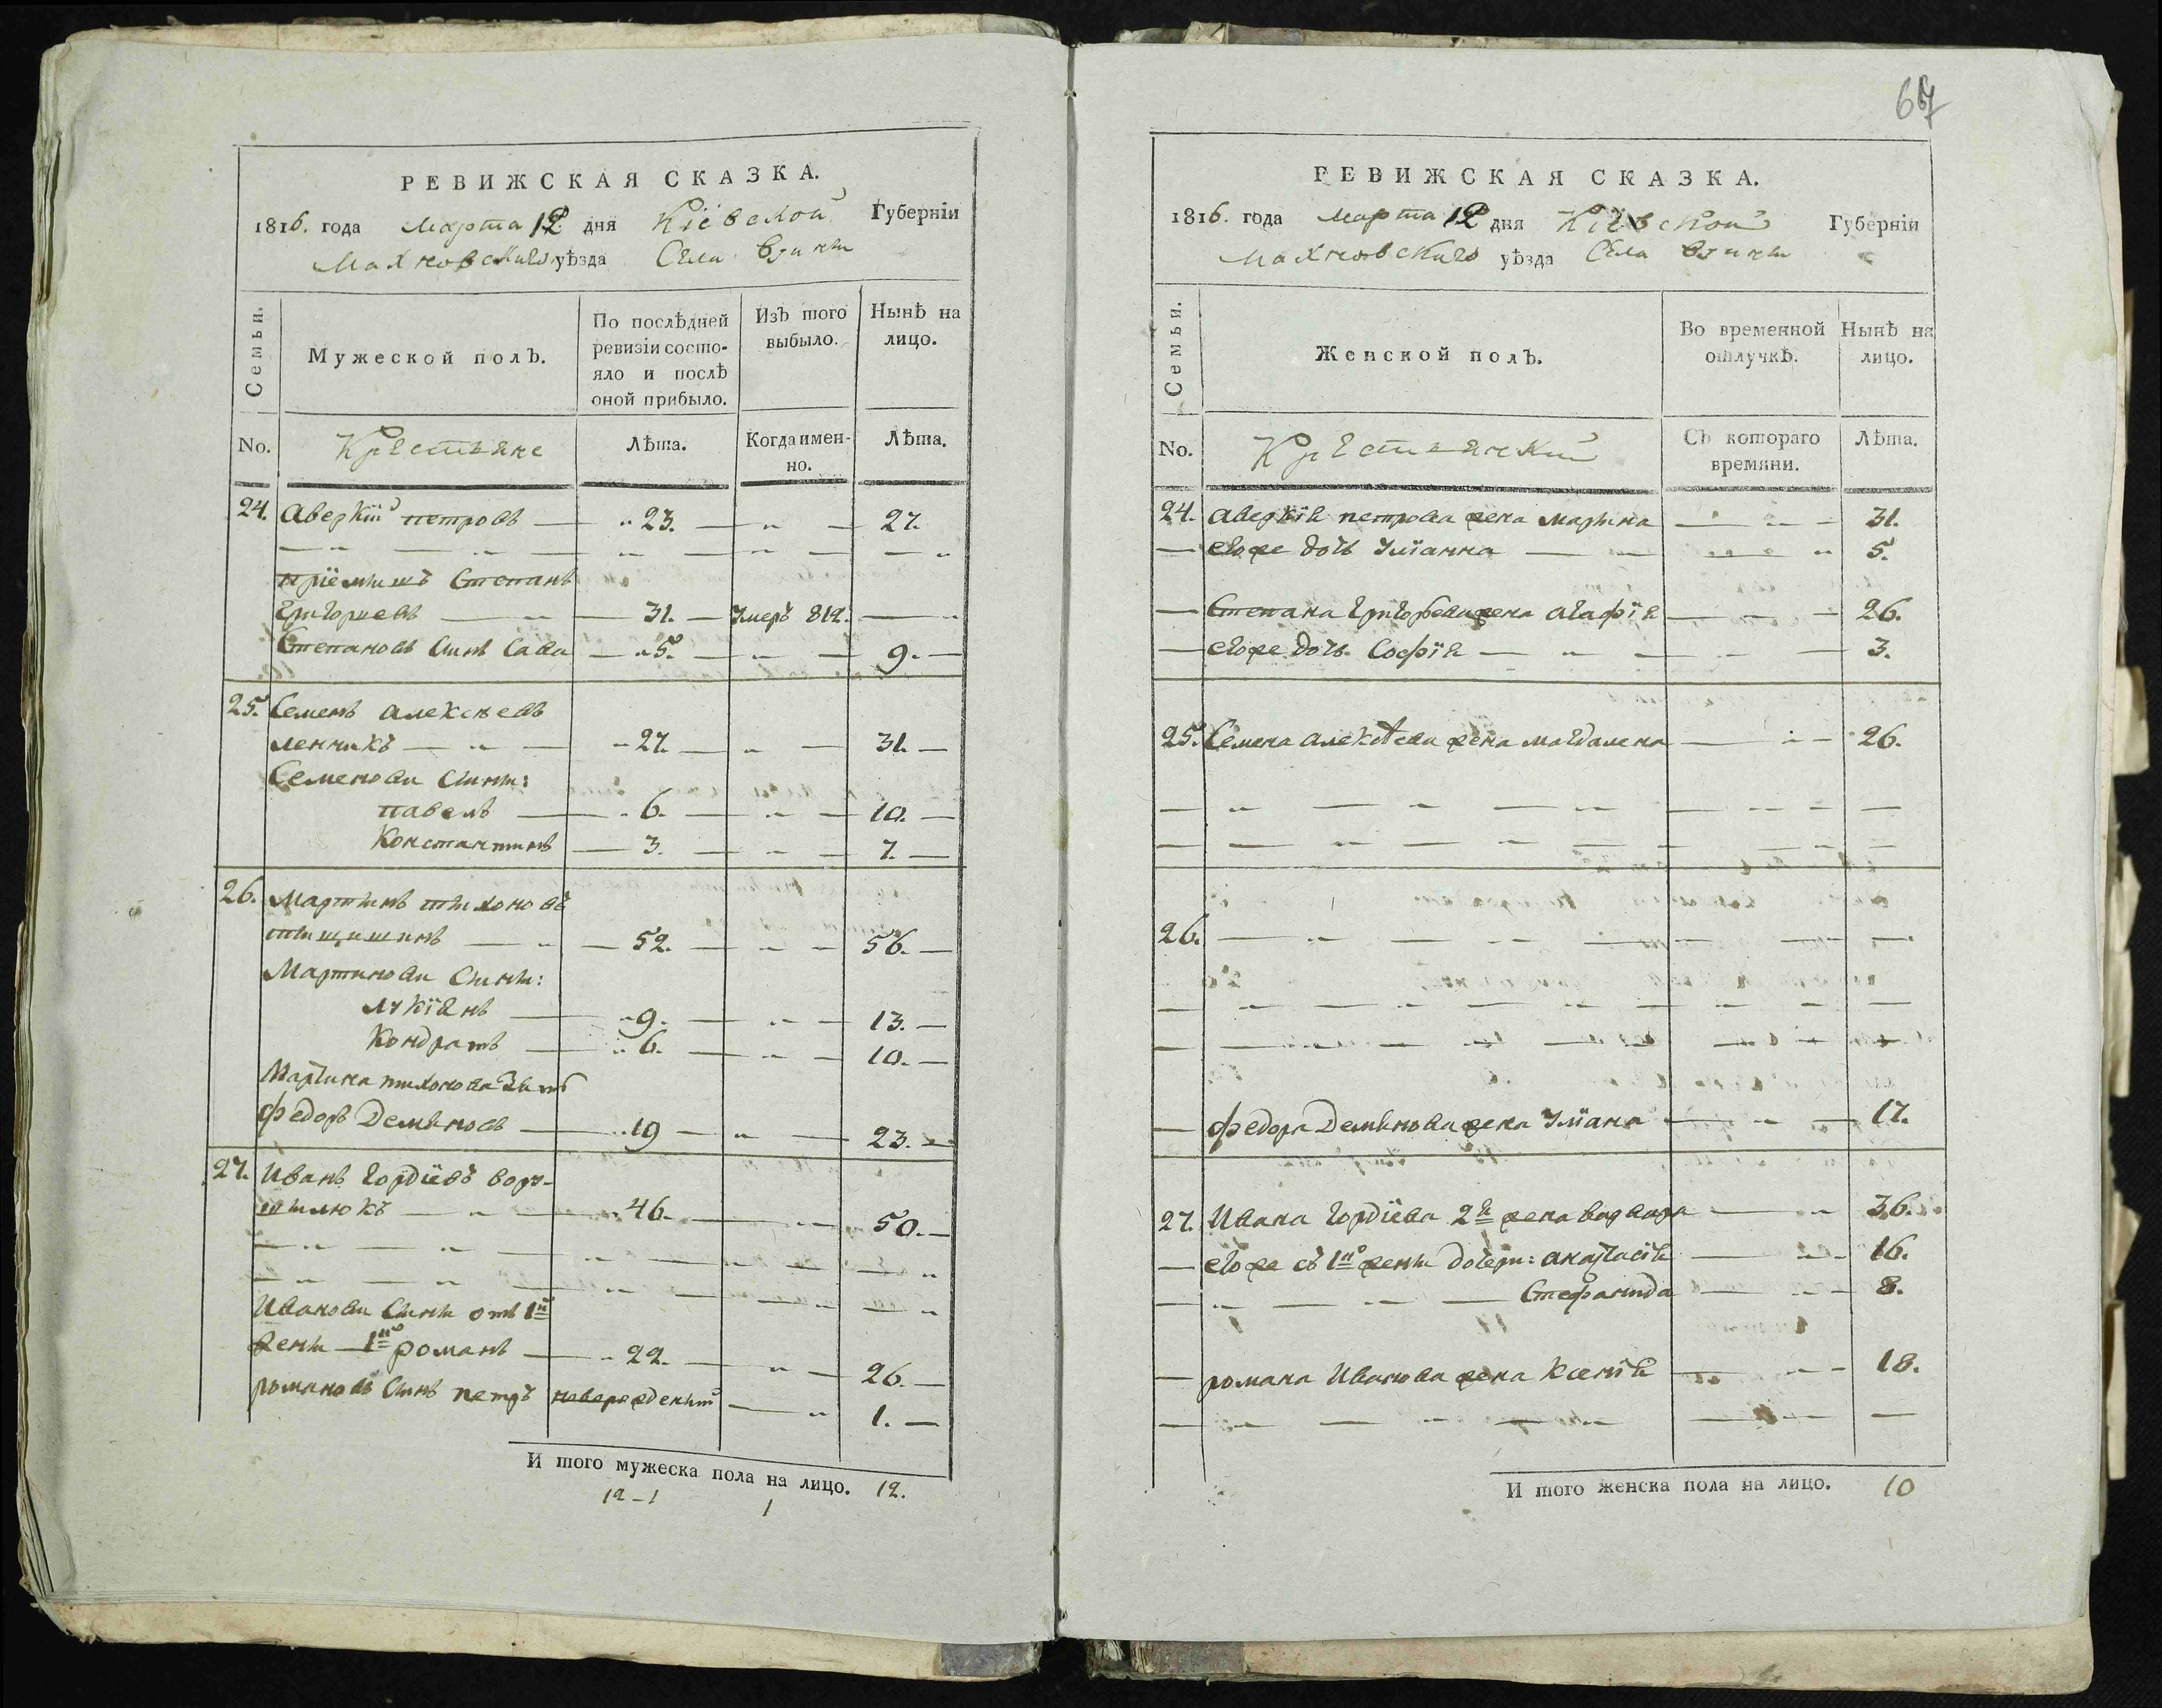 РЕВИЖСКАЯ СКАЗКА.
1816. года Марта 12 дня Кіевской Губерніи
Махновскаго уѣзда Села
Семьи.
Мужеской полъ.
По послѣдней ревизіи состояло и послѣ оной прибыло.
Изъ того выбыло.
Нынѣ на лицо.
No. Крестьяне Лѣта. Когда именно. Лѣта.
24. Аверкій Петровъ — 23. — 27.
пріемишъ Степанъ
Григориевъ — 31. — Умеръ 812. —
Степановъ Синъ Сава — 5. — 9. —
25. Семенъ Алексѣевъ
— 27. — 31. —
Семенови Сини:
павелъ — 6. — 10. —
Константинъ — 3. — 7. —
26. Мартинъ тихоновъ
тищишинъ — 52. — 56. —
Мартинови Сини:
Лукіянъ — 9. — 13. —
Кондратъ — 6. — 10. —
Мартина тихонова Зять
федоръ Демяновъ — 19 — 23. —
27. Иванъ Гордіевъ вору-
— 46. — 50. —
Иванови Сини отъ 1й
жени — 1й романъ — 22. — 26. —
романовъ Синъ петръ новорожденый — 1. —
И того мужеска пола на лицо. 12.
12 - 1 1
67
РЕВИЖСКАЯ СКАЗКА.
1816. года Марта 12 дня Кіевской Губерніи
Махновскаго уѣзда Села
Семьи.
Женской полъ.
Во временной отлучкѣ.
Нынѣ на лицо.
No. Крестьянскій Съ котораго времяни. Лѣта.
24. Аверкія петрова жена Марина — 31.
— егоже дочь Уліанна — 5.
— Степана Григорьева жена Агафія — 26.
— егоже дочь Софія — 3.
25. Семена Алексѣева жена Магдалена — 26.
26.
— федора Демянова жена Уліана — 17.
27. Ивана Гордіева 2я жена варвара — 36.
— егоже съ 1й жени дочери: анастасія — 16.
Стефанида — 8.
— романа Иванова жена Ксенія — 18.
И того женска пола на лицо. 10